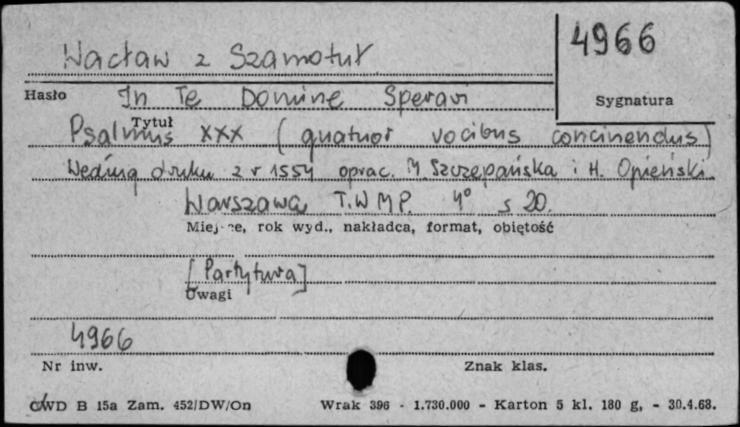 4966
Wacław z Szamotuł
Hasło
Sygnatura
In Te Domine Speravi
Tytuł
Psalmus XXX ( quatuor vocibus concinendus)
Według druku z r 1554 oprac. M. Szczepańska i H. Opieński.
Warszawa T.W M P. 4° s 20.
Miejsce, rok wyd., nakładca, format, objętość
[Partytura]
Uwagi
4966
Nr inw.
Znak klas.
CWD B 15a Zam. 452/DW/On Wrak 396 - 1.730.000 - Karton 5 kl. 180 g, - 30.4.68.